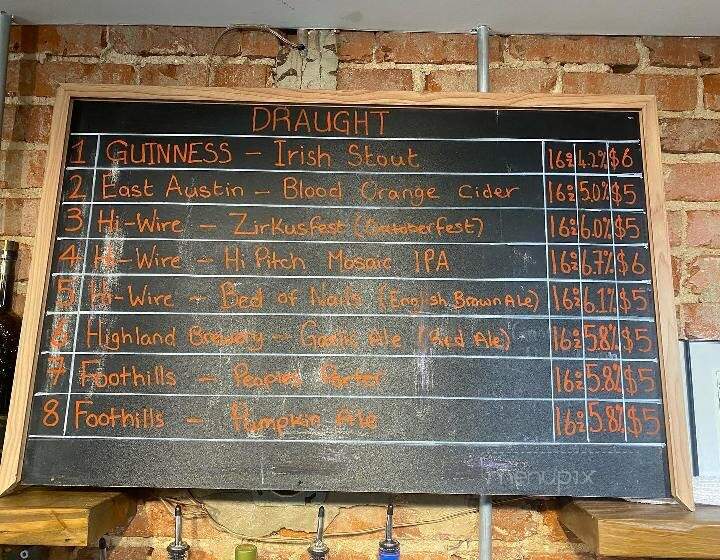 DRAUGHT
1 GUINNESS - Irish Stout 16oz 4.2% $6
2 East Austin - Blood Orange Cider 16oz 5.0% $5
3 Hi-Wire - Zirkusfest (Oktoberfest) 16oz 6.0% $5
4 Hi-Wire - Hi Pitch Mosaic IPA 16oz 6.7% $6
5 Hi-Wire - Bed of Nails (English Brown Ale) 16oz 6.1% $5
6 Highland Brewery - Gaelic Ale (Red Ale) 16oz 5.8% $5
7 Foothills - Peoples Porter 16oz 5.8% $5
8 Foothills - Pumpkin Ale 16oz 5.8% $5
menupix